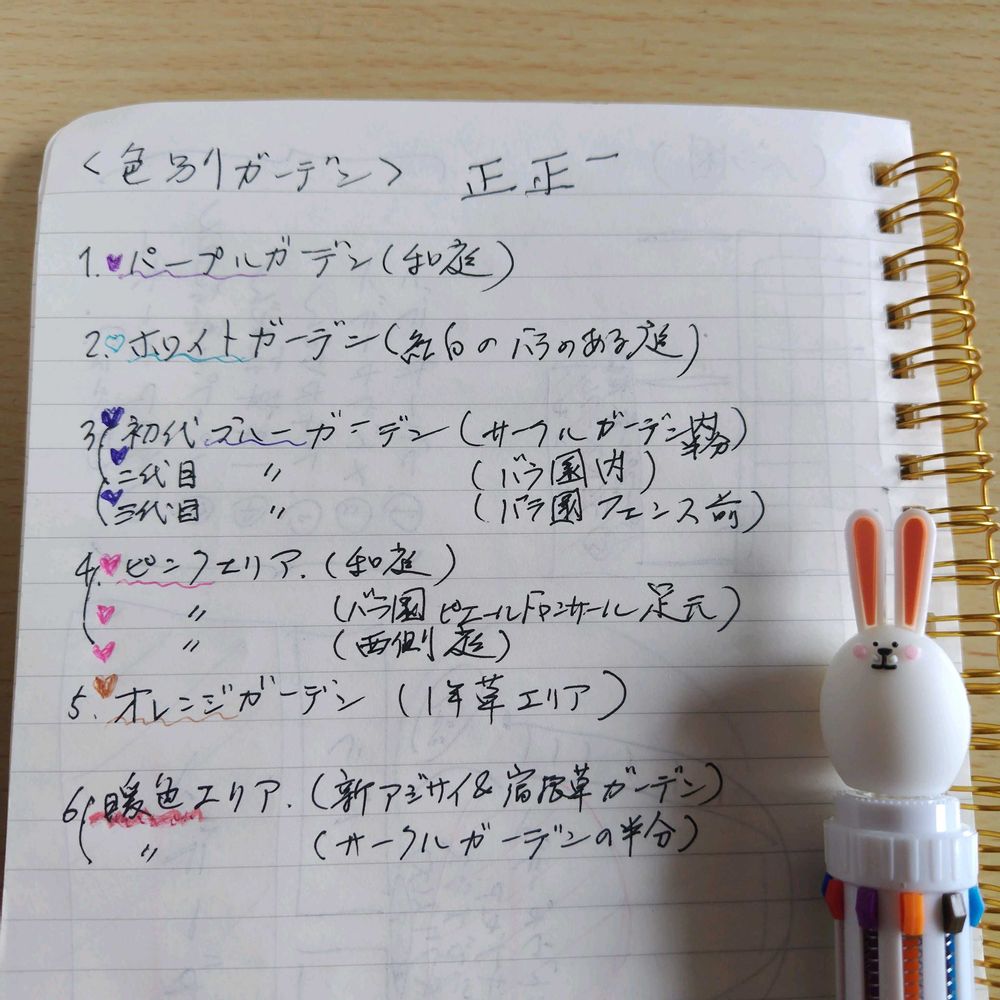 <色別ガーデン> 正正一
1.♥パープルガーデン(和庭)
2.♡ホワイトガーデン(紅白のバラのある庭)
3.♥初代ブルーガーデン(サークルガーデン半分)
♥二代目 〃 (バラ園内)
♥三代目 〃 (バラ園フェンス前)
4.♥ピンクエリア.(和庭)
♥ 〃 (バラ園ピエールドロンサール足元)
♥ 〃 (西側庭)
5.♥オレンジガーデン(1年草エリア)
6.暖色エリア.(新アジサイ&宿根草ガーデン)
〃 (サークルガーデンの半分)